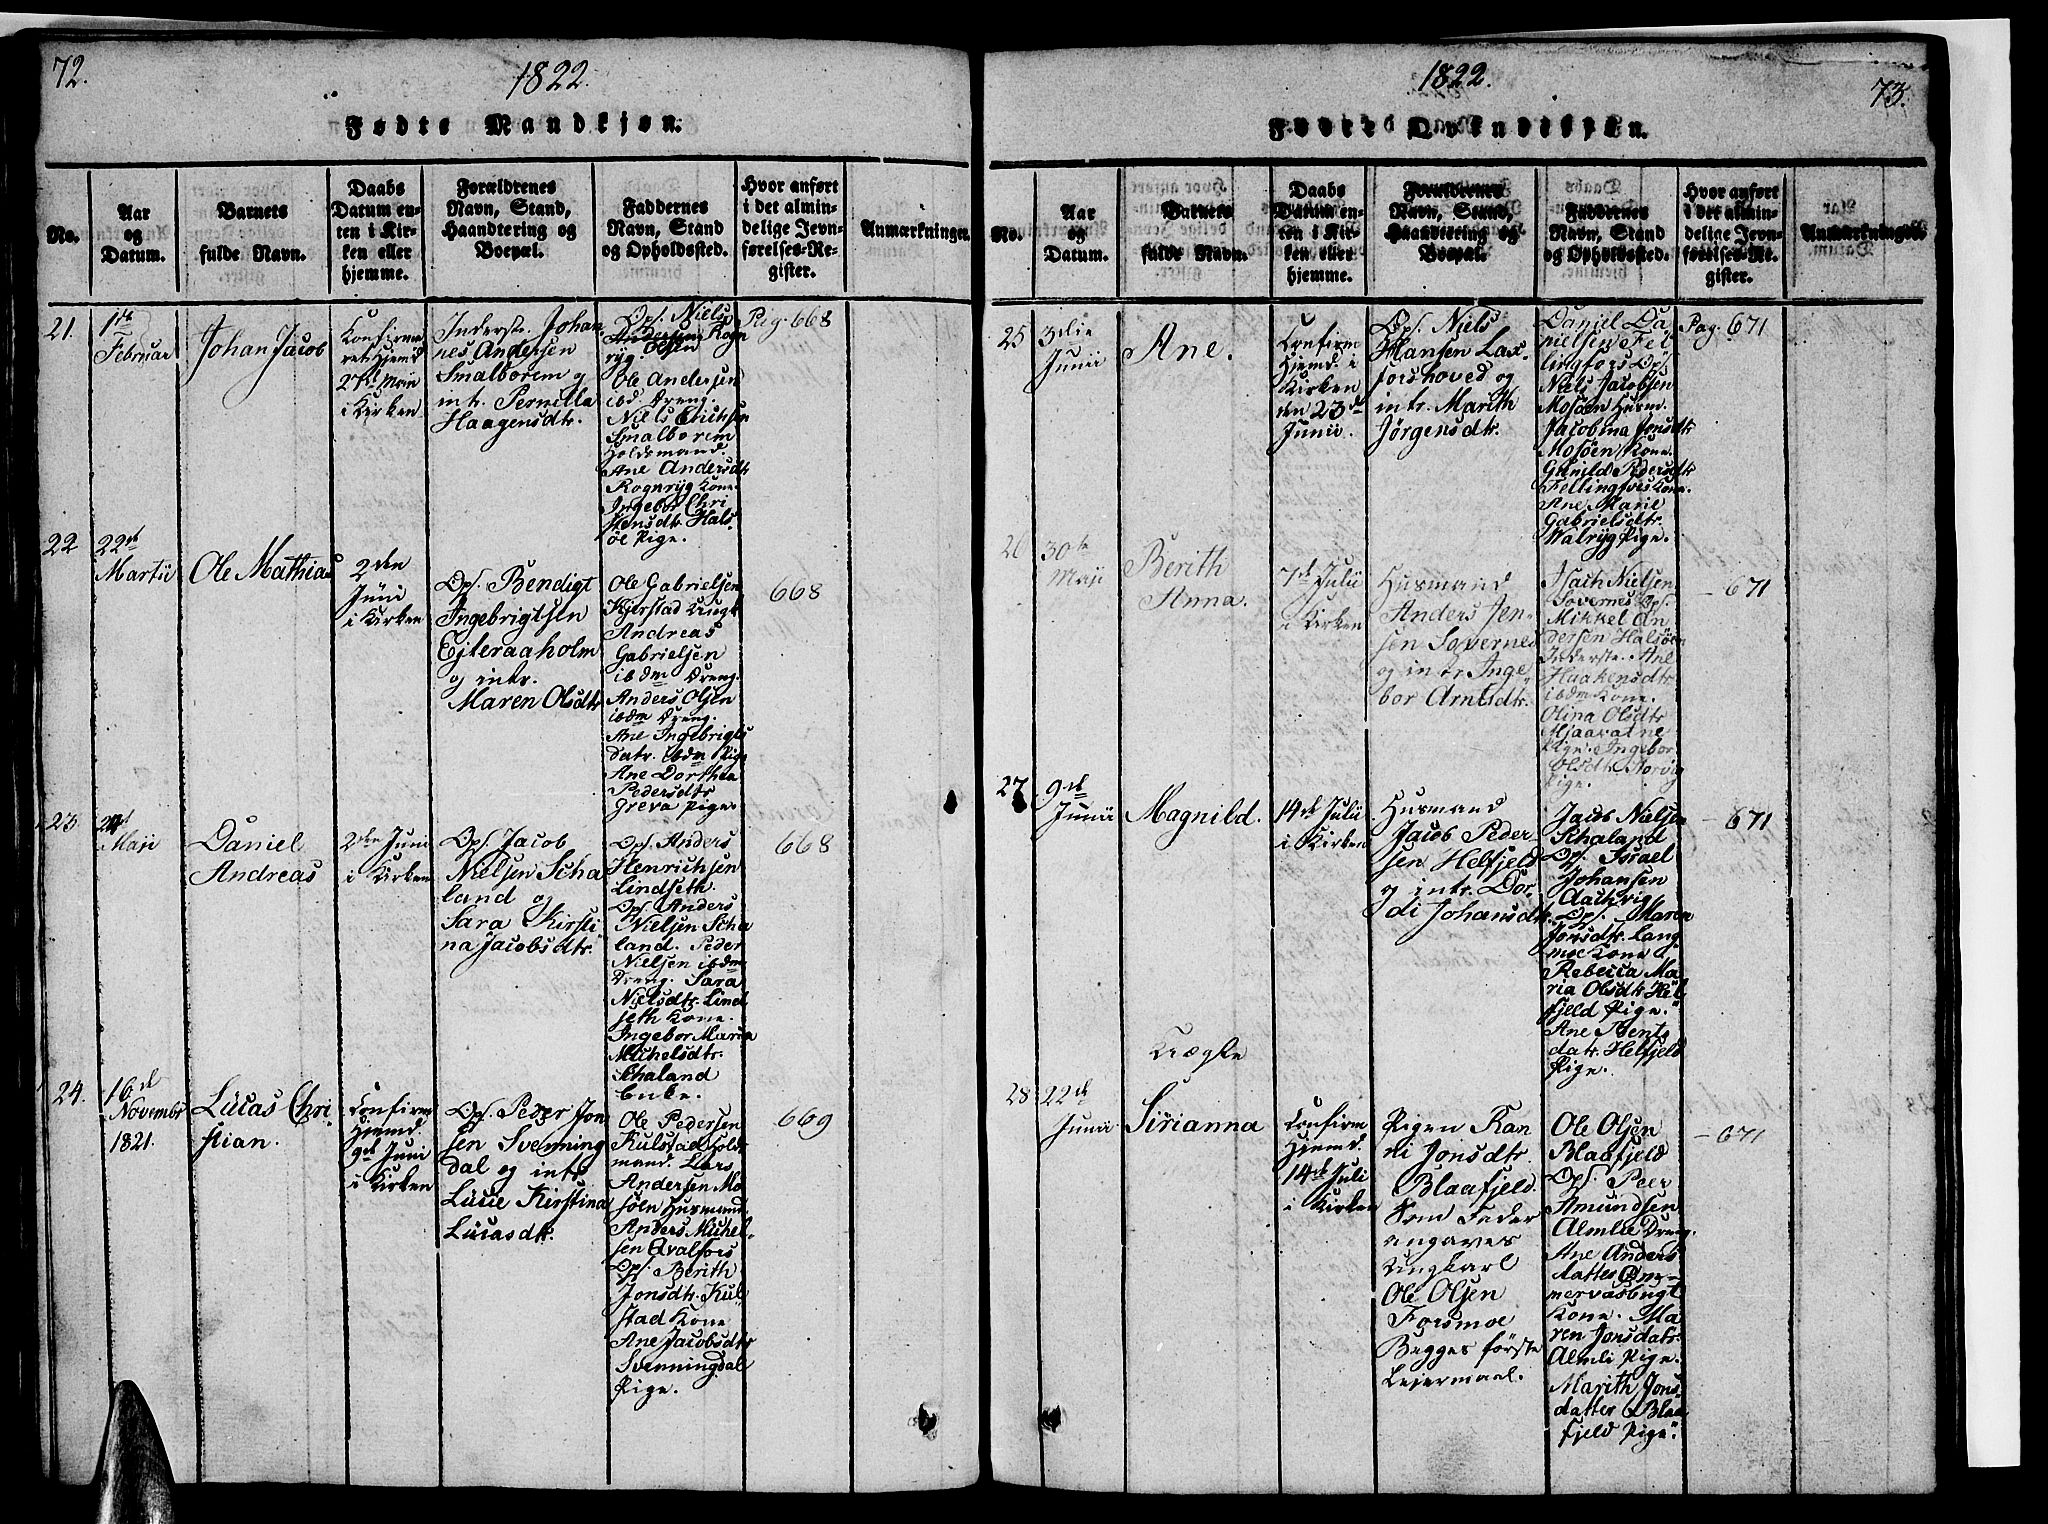 72.
1822.
Fødte Mandkjøn.
No.
Aar
og
Datum.
Barnets
fulde Navn.
Daabs
Datum en-
ten i Kir-
ken eller
hjemme.
Forældrenes
Navn, Stand,
Haandtering og
Boepæl.
Faddernes
Navn, Stand
og Opholdssted.
Hvor anført
i det almin-
delige Jevn-
førelses-Re-
gister.
Anmærkninger.
21.
1ste
Februar
Johan Jacob
Confirme
ret Hjemd
27de Maii
i Kirken
Inderste Johan
nes Andersen
Smalborem og
Pernilla
Haagensdtr.
Ops. Niels
Andersen Rogn
ryg
Olsen
Ole Andersen
ibd. Dreng.
Niels Erichsen
Smalborem
Holdsmand.
Ane Andersdtr
Rognryg Kone.
Ingebor Chri
stensdtr. Hals
øe Pige.
Pag. 668
22
22de
Martii
Ole Mathias
2den
Juni
i Kirken
Ops. Bendigt
Ingebrigtsen
Ejteraaholm
og intr.
Maren Olsdtr
Ole Gabrielsen
Kjerstad
Andreas
Gabrielsen
ibdm Dreng.
Anders Olsen
ibdm Dreng.
Ane Ingebrigts
datr. ibdm Pige
Ane Dorthea
Pedersdtr
Greva Pige.
668
23
Maji
Daniel
Andreas
2den Juni
i Kirken
Ops. Jacob
Nielsen Scha
land og
Sara Kirsti
na Jacobsdtr.
Ops. Anders
Henrichsen
Lindseth.
Ops. Anders
Nielsen Scha
land. Peder
Nielsen ibdm
Dreng. Sara
Nielsdtr. Lind
seth Kone.
Ingebor Maria
Michelsdtr.
Schaland
Enke.
668
24.
16de
Novembr
1821.
Lucas Chri
stian.
Confirm
Hjemd
9de Juni
i Kirken
Ops. Peder Jon
sen Svenning
dal og intr
Lucie Kirstina
Lucasdtr.
Ole Pedersen
Kulstad Hold
mand. Lars
Andersen Mo
søen Husmand
Anders Michel
sen Qvalfors
Ops. Berith
Jonsdtr. Kul
stad Kone
Ane Jacobsdtr
Svenningdal
Pige.
669
1822.
73.
Fødte Qvindekjøn.
No.
Aar
og
Datum.
Barnets
fulde Navn.
Daabs
Datum en-
ten i Kir-
ken eller
hjemme.
Forældrenes
Navn, Stand,
Haandtering og
Boepæl.
Faddernes
Navn, Stand
og Opholdssted.
Hvor anført
i det almin-
delige Jevn-
førelses-Re-
gister.
Anmærkninger.
25
3die
Junii
Ane.
Confirm
Hjemd. i
Kirken
den 23de
Junii.
Ops. Niels
Hansen Lax-
forshoved og
intr. Marith
Jørgensdtr.
Daniel Da
nielsen Fel
lingfors Ops
Niels Jacobsen
Mosøen Husm.
Jacobina Jonsdtr
Mosøen Kone.
Gunild Pedersdtr
Fellingfors Kone.
Ane Marie
Gabrielsdtr.
Walryg Pige.
Pag. 671
26
30te
Maji
Berith
Anna.
7de Julii
i Kirken
Husmand
Anders Jen-
sen Sovernes
og intr Inge
bor Arntsdtr.
Nielsen
Sovernes Ops.
Mikkel An
dersen Halsøen
Inderste. Ane
Haakensdtr
ibdm Kone.
Olina Olsdtr
Pige. Ingebor
Olsdtr
Pige.
671
27
9de
Junii
Magnild.
14de Julii
i Kirken
Husmand
Jacob Peder
sen Helfjeld
og intr. Dor
di Johansdtr.
Jacob Nielsen
Schaland
Ops. Israel
Johansen
Ops. Maren
Jonsdtr. Lang
moe Kone
Rebecca Ma
ria Olsdtr Hel
fjeld Pige.
Ane Bents
datr. Helfjeld
Pige.
671
Uægte
28
22de
Junii
Sirianna
Confirm
Hjemd.
14de Juli
i Kirken
Pigen Ran
di Jonsdtr.
Blaafjeld.
Som Fader
angaves
Ungkarl
Ole Olsen
Forsmoe
Begges første
Leiermaal.
Ole Olsen
Blaafjeld
Ops. Peer
Amundsen
Almlie Dreng.
Ane Anders
datter
mervasbugt
Kone. Ma
ren Jonsdatr.
Almli Pige.
Marith Jons
datter Blaa
fjeld Pige.
671